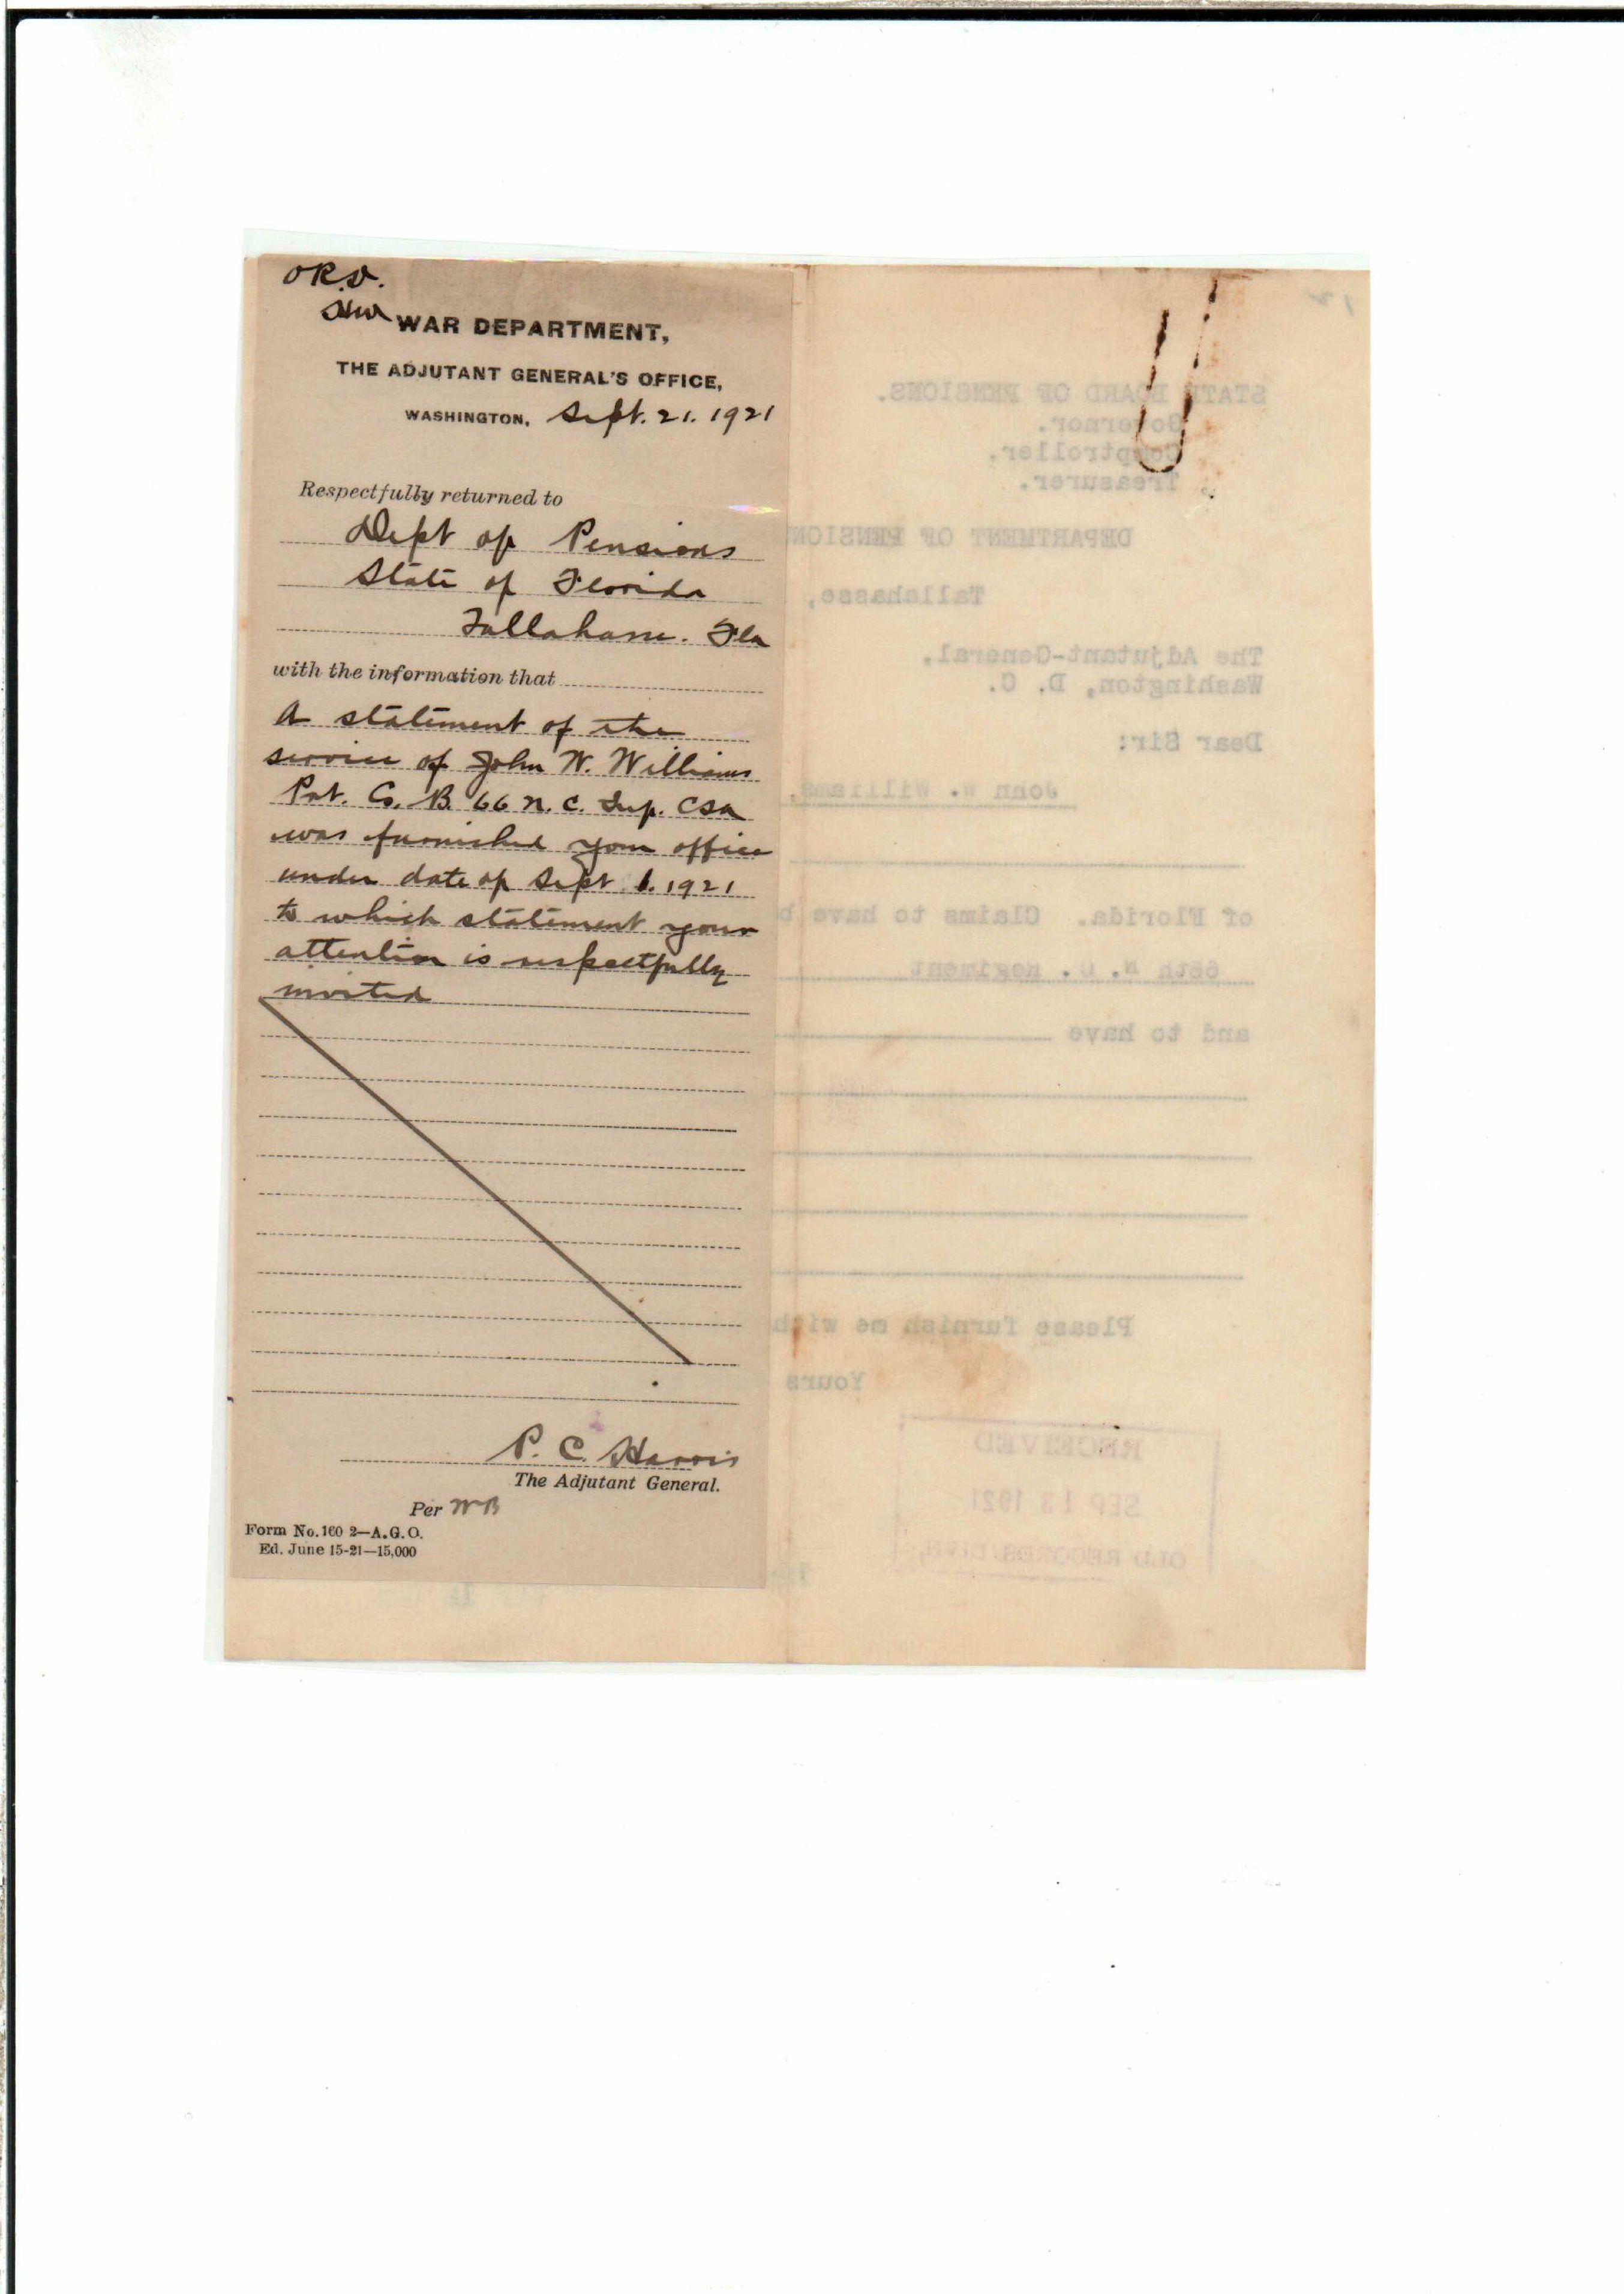 O.R.D.
WAR DEPARTMENT,
THE ADJUTANT GENERAL'S OFFICE,
WASHINGTON, Sept. 21. 1921
Respectfully returned to
Dept of Pensions
State of Florida
Tallahassee. Fla
with the information that
A statement of the
service of John W. Williams
Pvt. Co. B. 66 N. C. Inf. CSA
was furnished your office
under date of Sept 1. 1921
to which statement your
attention is respectfully
invited
P. C. Harris
The Adjutant General.
Per WB
Form No. 160 2—A.G.O.
Ed. June 15-21—15,000
STATE BOARD OF PENSIONS.
Governor.
Comptroller.
Treasurer.
DEPARTMENT OF PENSION
Tallahasse,
The Adjutant-General,
Washington, D. C.
Dear Sir:
John W. Williams,
of Florida. Claims to have b
66th N. C. Regiment
and to have
Please furnish me with
Yours
RECEIVED
SEP 13 1921
OLD RECORDS DIVN.